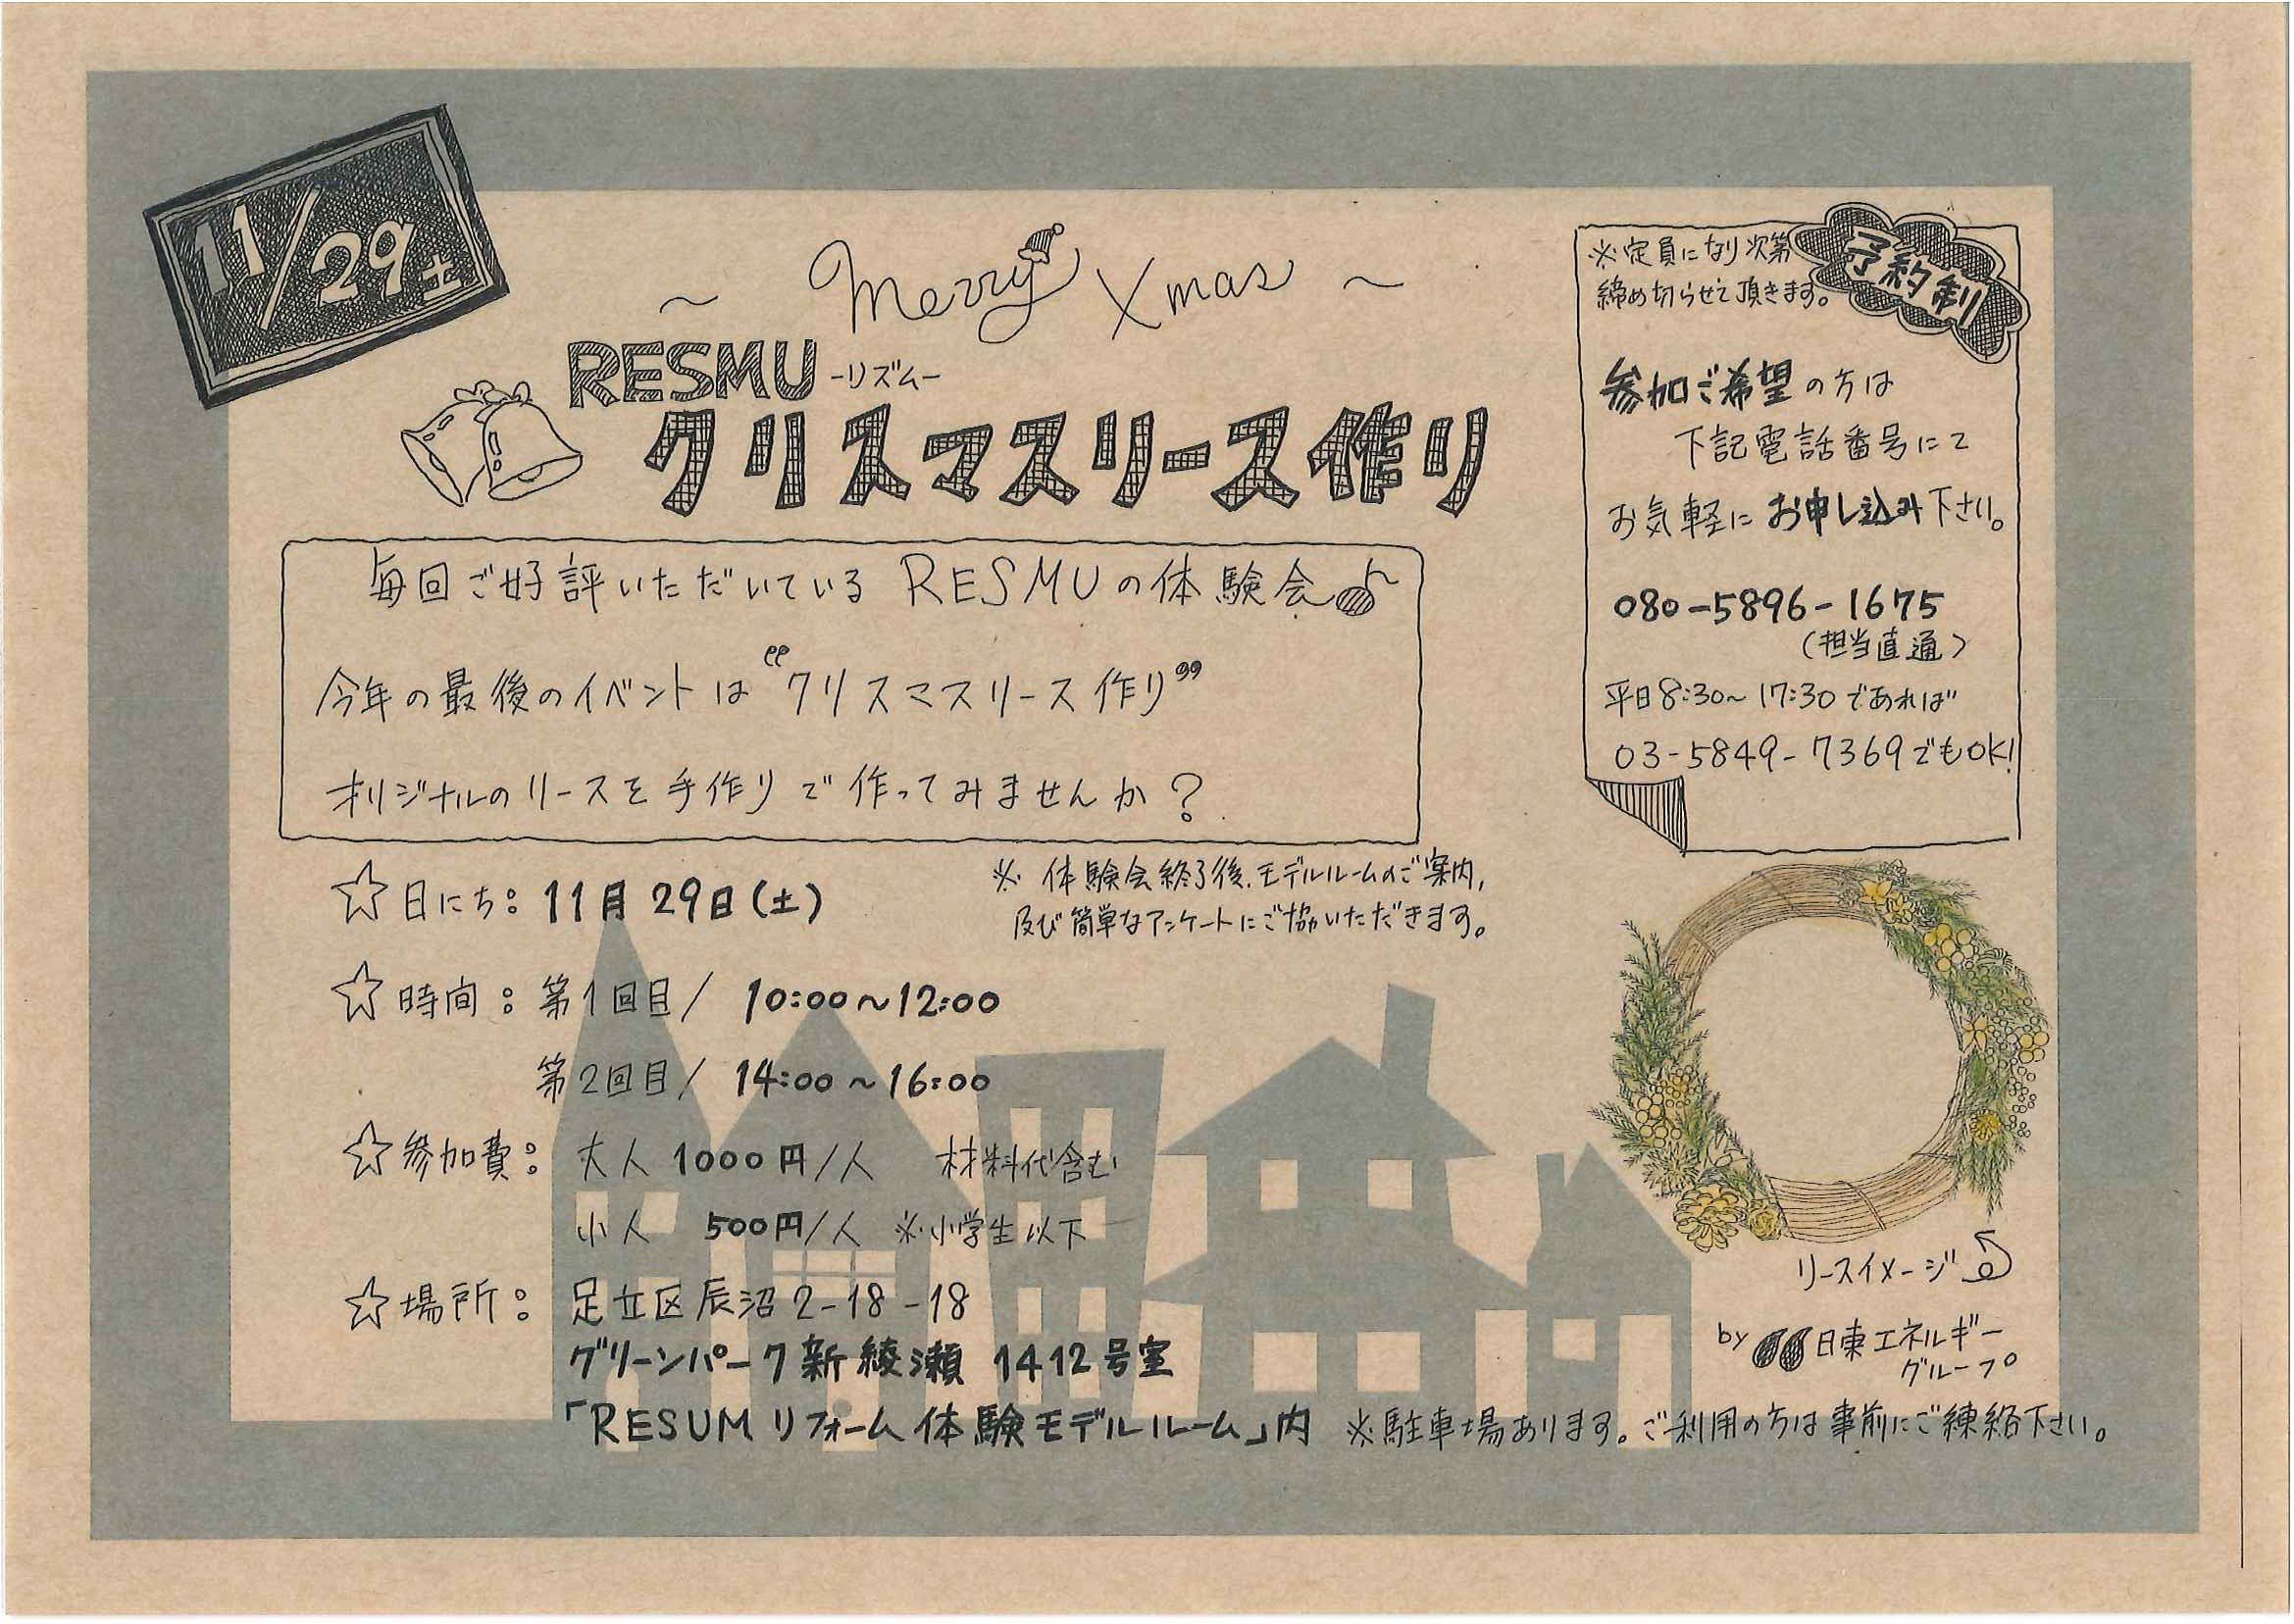 11/29土
～ Merry Xmas ～
RESMU -リズム-
クリスマスリース作り
毎回ご好評いただいている RESMUの体験会♪
今年の最後のイベントは“クリスマスリース作り”
オリジナルのリースを手作りで作ってみませんか？
☆日にち：11月29日(土)
※ 体験会終了後、モデルルームのご案内、
及び簡単なアンケートにご協いただきます。
☆時間：第1回目/ 10:00～12:00
第2回目/ 14:00～16:00
☆参加費：大人 1000円/人 材料代含む
小人 500円/人 ※小学生以下
☆場所：足立区辰沼2-18-18
グリーンパーク新綾瀬 1412号室
「RESUM リフォーム体験モデルルーム」内 ※駐車場あります。ご利用の方は事前にご練絡下さい。
予約制
※定員になり次第
締め切らせて頂きます。
参加ご希望の方は
下記電話番号にて
お気軽にお申し込み下さい。
080-5896-1675
(担当直通)
平日8:30～17:30であれば
03-5849-7369でもOK!
リースイメージ
by 日東エネルギー
グループ